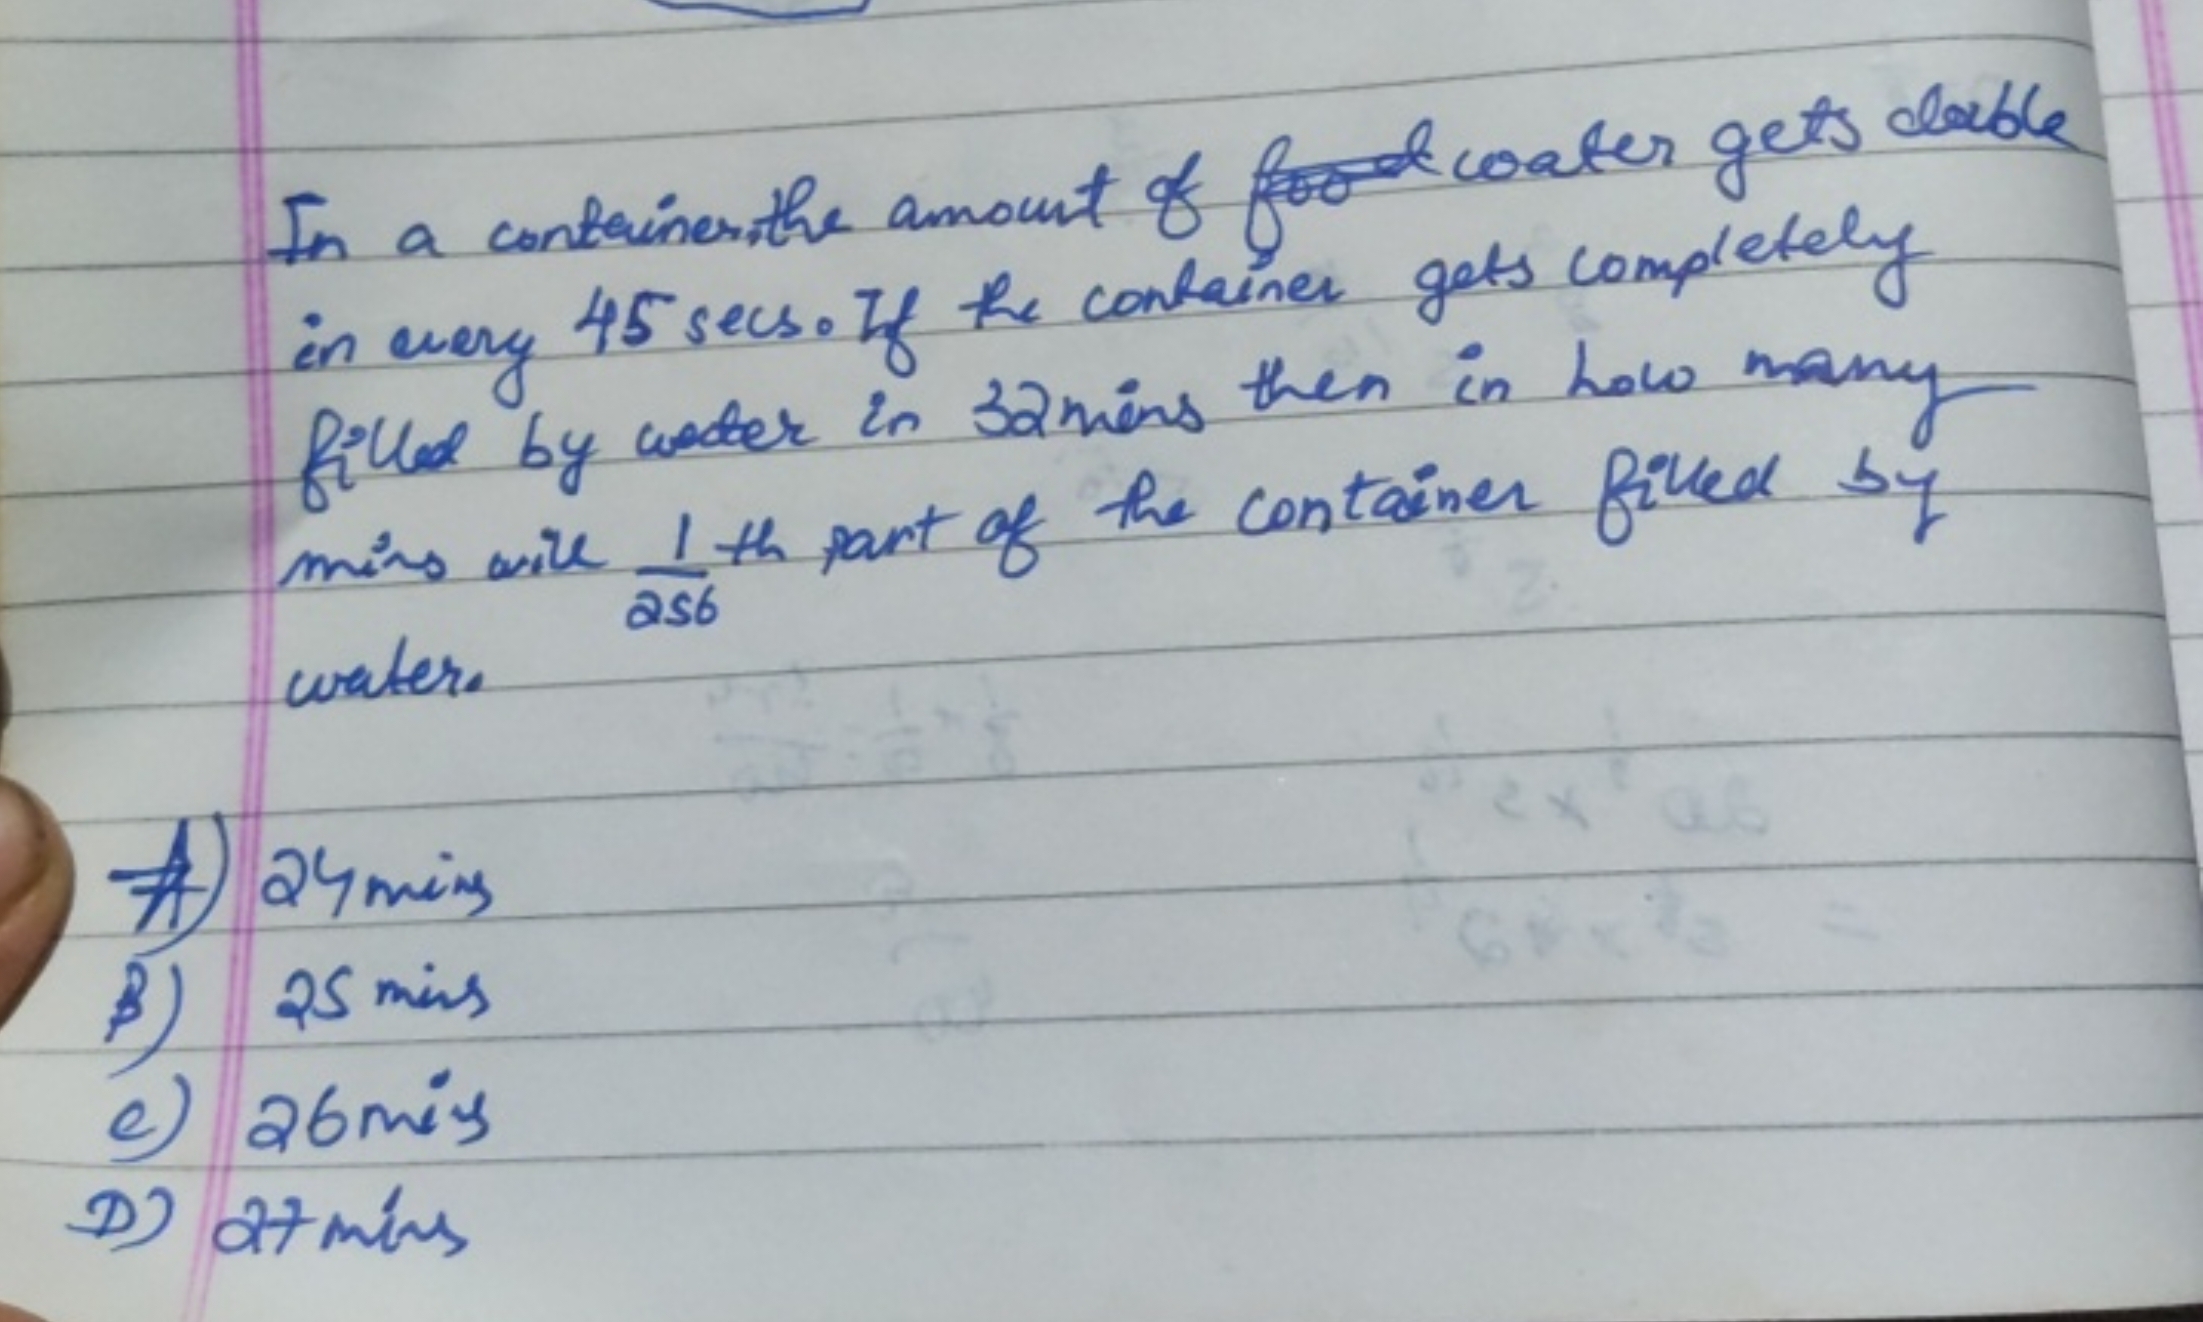 In a container, the amount of food water gets double
in every 45 secs. If the container gets completely
filled by water in 32 mins then in how many
mins will 1/256 th part of the container filled by
water.
A) 24 mins
B) 25 mins
C) 26 mins
D) 27 mins